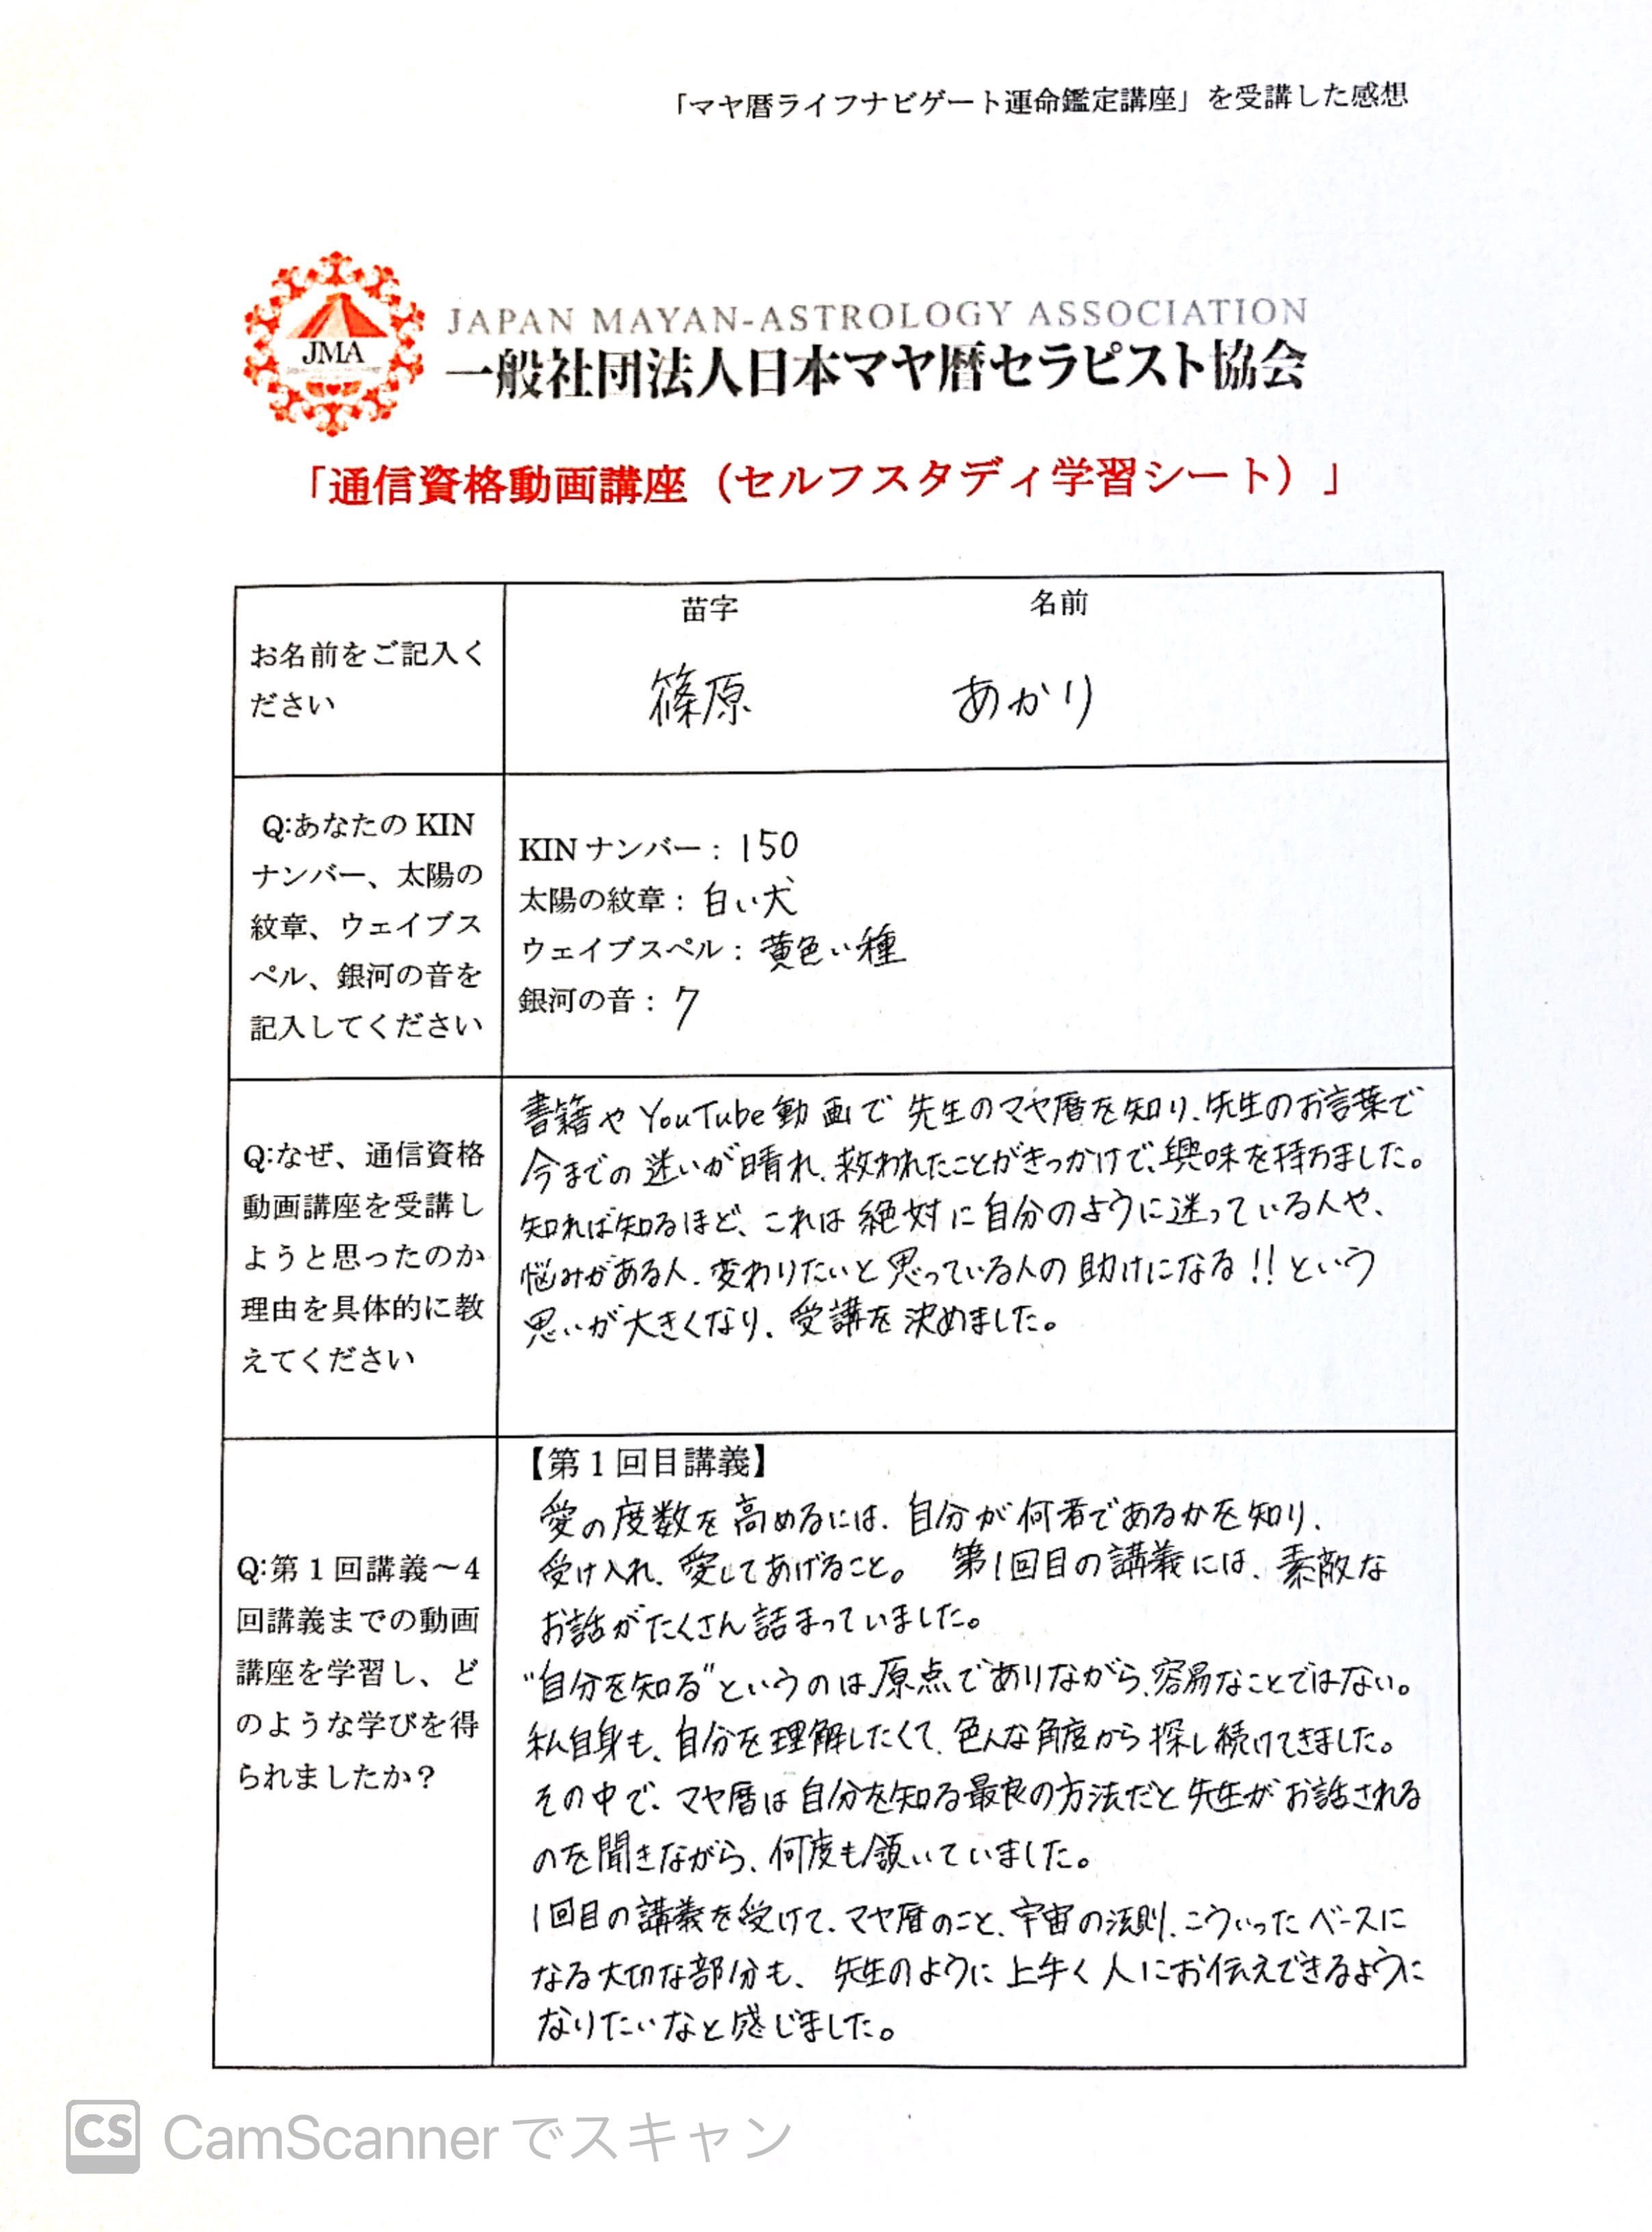 「マヤ暦ライフナビゲート運命鑑定講座」を受講した感想
JMA
JAPAN MAYAN-ASTROLOGY ASSOCIATION
一般社団法人日本マヤ暦セラピスト協会
「通信資格動画講座（セルフスタディ学習シート）」
お名前をご記入く
ださい
苗字 名前
篠原 あかり
Q:あなたの KIN
ナンバー、太陽の
紋章、ウェイブス
ペル、銀河の音を
記入してください
KIN ナンバー：150
太陽の紋章：白い犬
ウェイブスペル：黄色い種
銀河の音：7
Q:なぜ、通信資格
動画講座を受講し
ようと思ったのか
理由を具体的に教
えてください
書籍や YouTube動画で 先生のマヤ暦を知り、先生のお言葉で
今までの迷いが晴れ、救われたことがきっかけで、興味を持ちました。
知れば知るほど、これは絶対に自分のように迷っている人や、
悩みがある人、変わりたいと思っている人の助けになる!!という
思いが大きくなり、受講を決めました。
Q:第 1 回講義～4
回講義までの動画
講座を学習し、ど
のような学びを得
られましたか？
【第 1 回目講義】
愛の度数を高めるには、自分が何者であるかを知り、
受け入れ、愛してあげること。 第1回目の講義には、素敵な
お話がたくさん詰まっていました。
“自分を知る”というのは、原点でありながら、容易なことではない。
私自身も、自分を理解したくて、色んな角度から探し続けてきました。
その中で、マヤ暦は自分を知る最良の方法だと先生がお話される
のを聞きながら、何度も頷いていました。
1回目の講義を受けて、マヤ暦のこと、宇宙の法則、こういったベースに
なる大切な部分も、先生のように上手く人にお伝えできるように
なりたいなと感じました。
CS CamScannerでスキャン